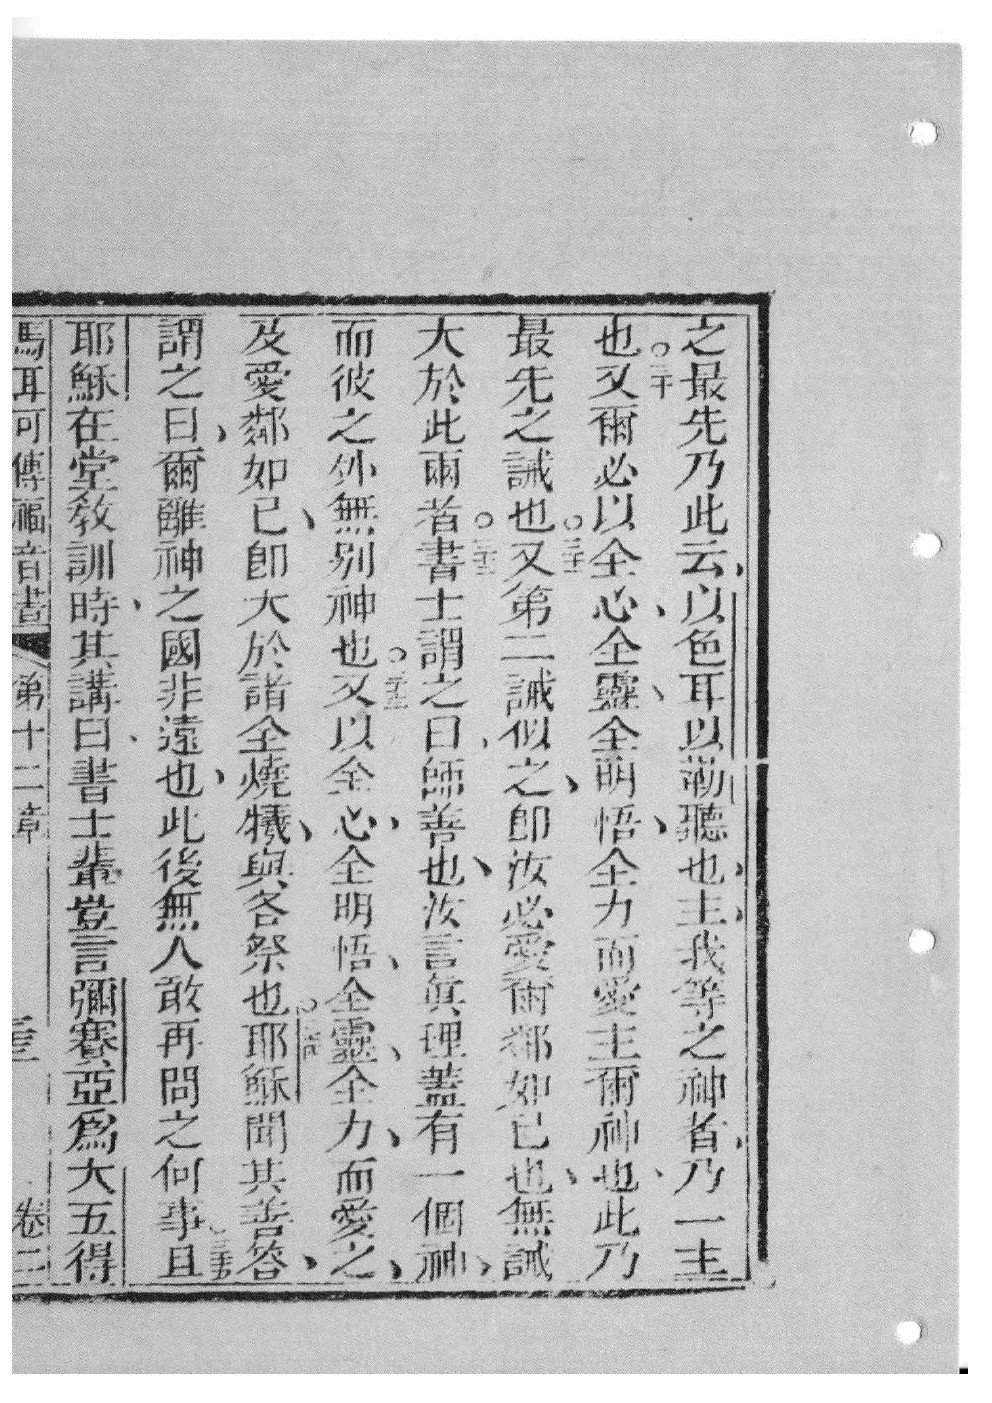 之最先乃此云、以色耳以勒聽也、主、我等之神者、乃一主
也。三十又爾必以全心、全靈、全明悟、全力而愛主爾神也、此乃
最先之誡也。三十一又第二誡似之、即汝必愛爾鄰如己也、無誡
大於此兩者。三十二書士謂之曰、師善也、汝言眞理蓋有一個神、
而彼之外無别神也。三十三又以全心、全明悟、全靈、全力、而愛之、
及愛鄰如己、即大於諸全燒犧、與各祭也。三十四耶穌聞其善答、
謂之曰、爾離神之國非遠也、此後無人敢再問之何事。三十五且
耶穌在堂教訓時、其講曰、書士輩豈言彌賽亞爲大五得
馬耳可傳福音書 第十二章 卷二